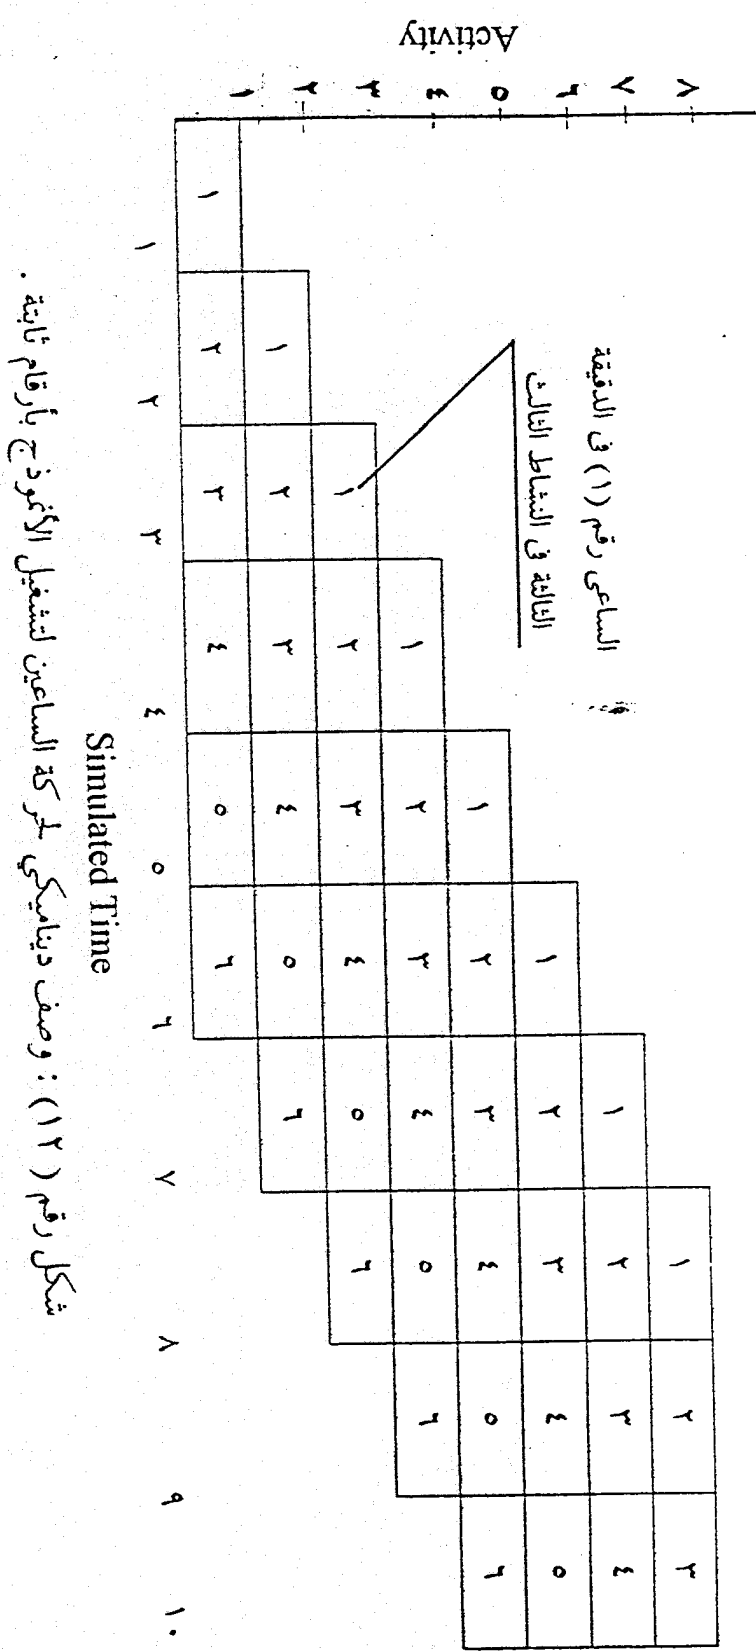 Activity
٨ ١ ٢ ٣
٧ ١ ٢ ٣ ٤
الساعى رقم (١) فى الدقيقة
الثالثة فى النشاط الثالث
٦ ١ ٢ ٣ ٤ ٥
٥ ١ ٢ ٣ ٤ ٥ ٦
٤ ١ ٢ ٣ ٤ ٥ ٦
٣ ١ ٢ ٣ ٤ ٥ ٦
٢ ١ ٢ ٣ ٤ ٥ ٦
١ ١ ٢ ٣ ٤ ٥ ٦
١ ٢ ٣ ٤ ٥ ٦ ٧ ٨ ٩ ١٠
Simulated Time
شكل رقم (١٢) : وصف ديناميكي لحركة الساعين لتشغيل الأنموذج بأرقام ثابتة .